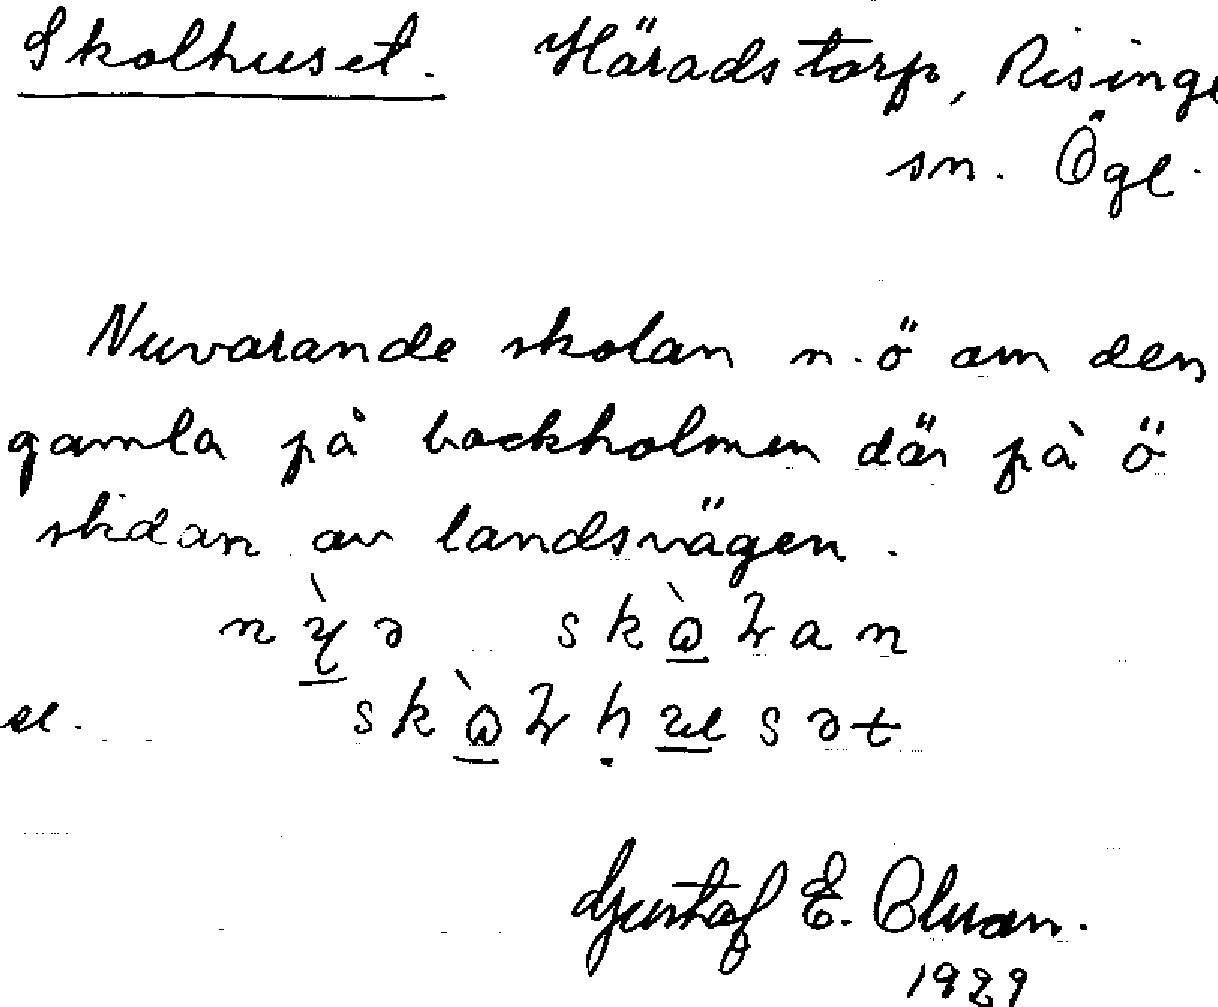 Skolhuset. Häradstorp, Risinge
sn. Ögl.
Nuvarande skolan n.ö om den
gamla på backholmen där på ö
sidan av landsvägen.
nỳə skòɽan
el. skòɽhusət
Gustaf E.
1929